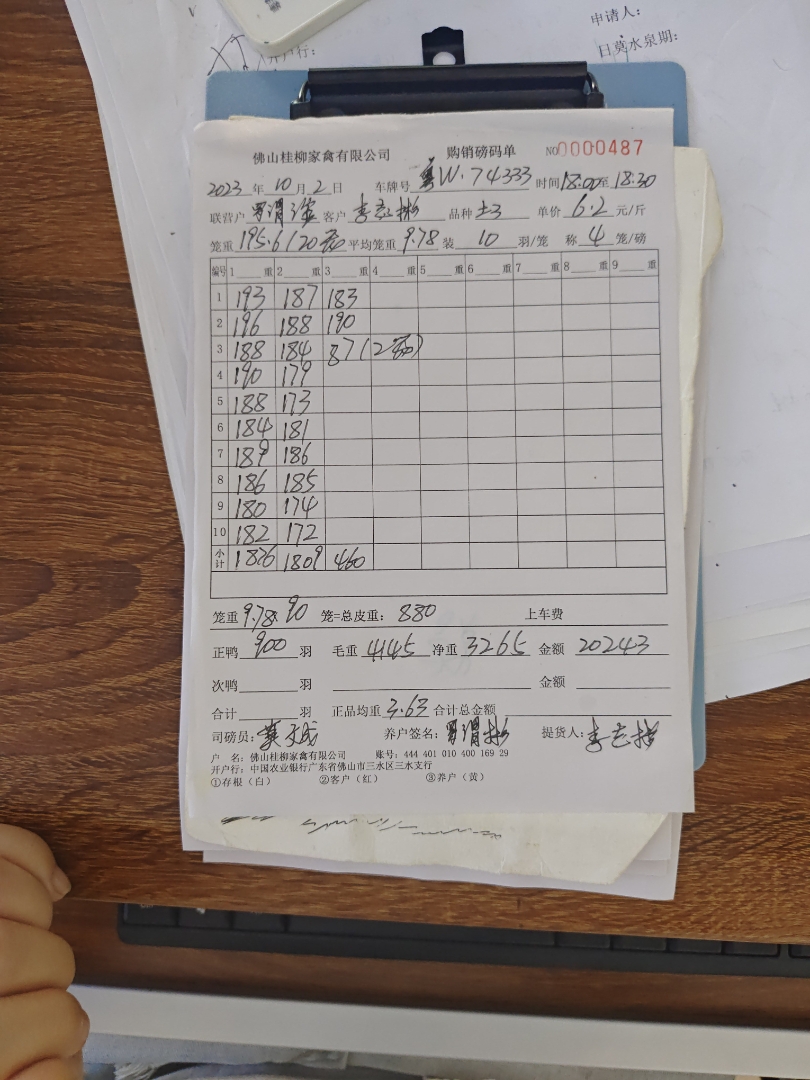 申请人:
开户行:
日莫水泉期:
佛山桂柳家禽有限公司 购销磅码单 NO 0000487
2023 年 10 月 2 日 车牌号 粤W·74333 时间 18:00至 18:30
联营户 客户 品种 土3 单价 6.2 元/斤
笼重 195.6/20 平均笼重 9.78 装 10 羽/笼 称 4 笼/磅
编号 1 重 2 重 3 重 4 重 5 重 6 重 7 重 8 重 9 重
1 193 187 183
2 196 188 190
3 188 184 87(2笼)
4 190 179
5 188 173
6 184 181
7 189 186
8 186 185
9 180 174
10 182 172
小计 1876 1809 460
笼重 9.78 90 笼=总皮重: 880 上车费
正鸭 900 羽 毛重 4145 净重 3265 金额 20243
次鸭 羽 金额
合计 羽 正品均重 3.63 合计总金额
司磅员: 养户签名: 提货人:
户 名: 佛山桂柳家禽有限公司 账号: 444 401 010 400 169 29
开户行: 中国农业银行广东省佛山市三水区三水支行
①存根(白) ②客户(红) ③养户(黄)